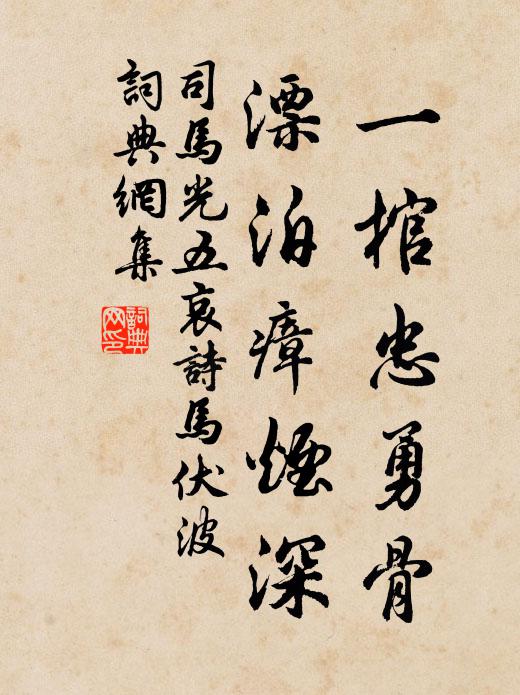 一棺忠勇骨
漂泊瘴煙深
司馬光五哀詩馬伏波
詞典網集
詞典
网印